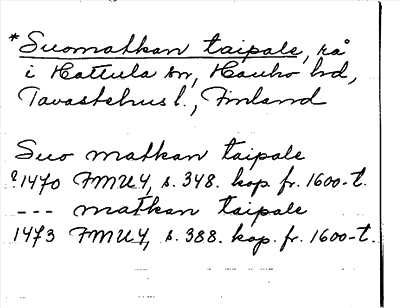 *Suomatkan taipale, rå
i Hattula sn, Hauho hd,
Tavastehus l., Finland
Suo matkan taipale
?1470 FMU4, s. 348. kop. fr. 1600-t.
--- matkan taipale
1473 FMU4, s. 388. kop. fr. 1600-t.